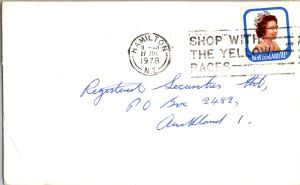 HAMILTON
1978
N.Z.
SHOP WITH
THE YELLOW
PAGES
NEW ZEALAND 10c
Registered Securities Ltd,
PO Box 2482,
Auckland 1.